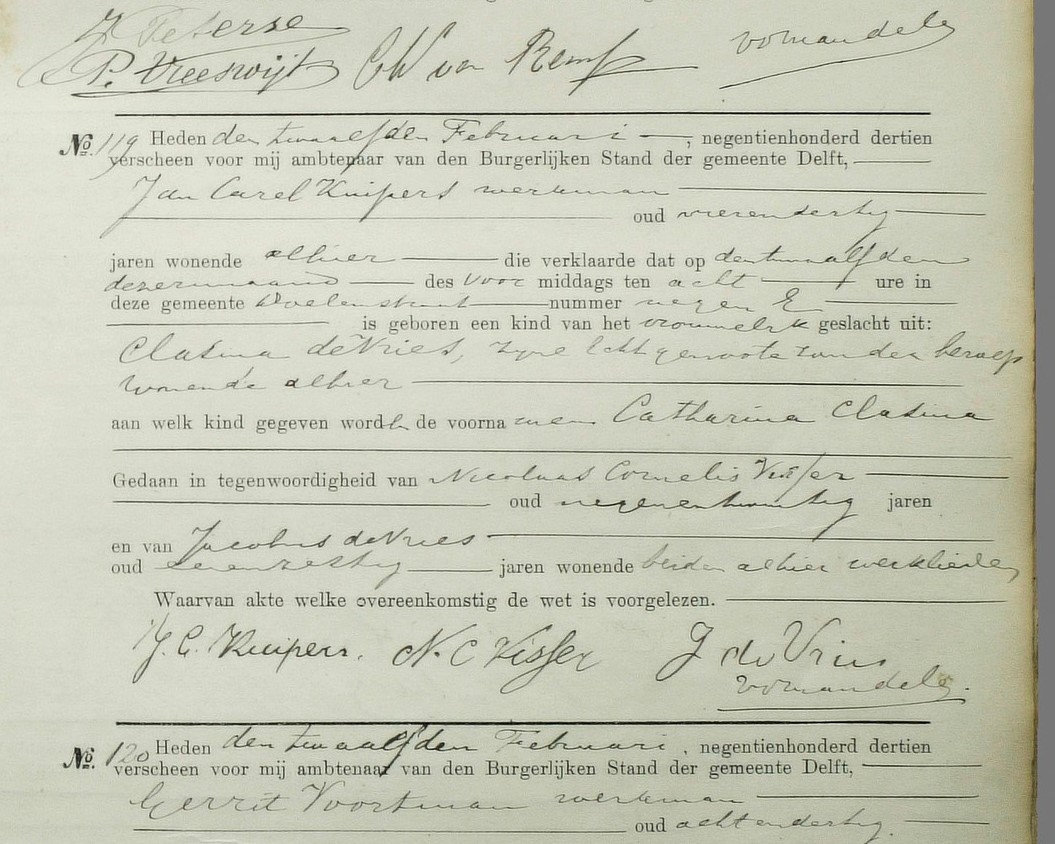 J Peterse
P. Vreeswijk CW van
No. 119 Heden den twaalfden Februari, negentienhonderd dertien
verscheen voor mij ambtenaar van den Burgerlijken Stand der gemeente Delft,
Jan Carel Kuipers werkman
oud vierendertig
jaren wonende alhier die verklaarde dat op den twaalfden
dezer maand des voor middags ten acht ure in
deze gemeente Doelenstraat nummer negen E
is geboren een kind van het vrouwelijk geslacht uit:
Clasina de Vries, zijne echtgenoote zonder beroep
wonende alhier
aan welk kind gegeven wordt de voornamen Catharina Clasina
Gedaan in tegenwoordigheid van Nicolaas Cornelis Visser
oud negenentwintig jaren
en van Jacobus de Vries
oud zevenzestig jaren wonende beiden alhier werklieden
Waarvan akte welke overeenkomstig de wet is voorgelezen.
J. C. Kuipers. N. C Visser J de Vries
No. 120 Heden den twaalfden Februari, negentienhonderd dertien
verscheen voor mij ambtenaar van den Burgerlijken Stand der gemeente Delft,
Gerrit Voortman werkman
oud achtendertig